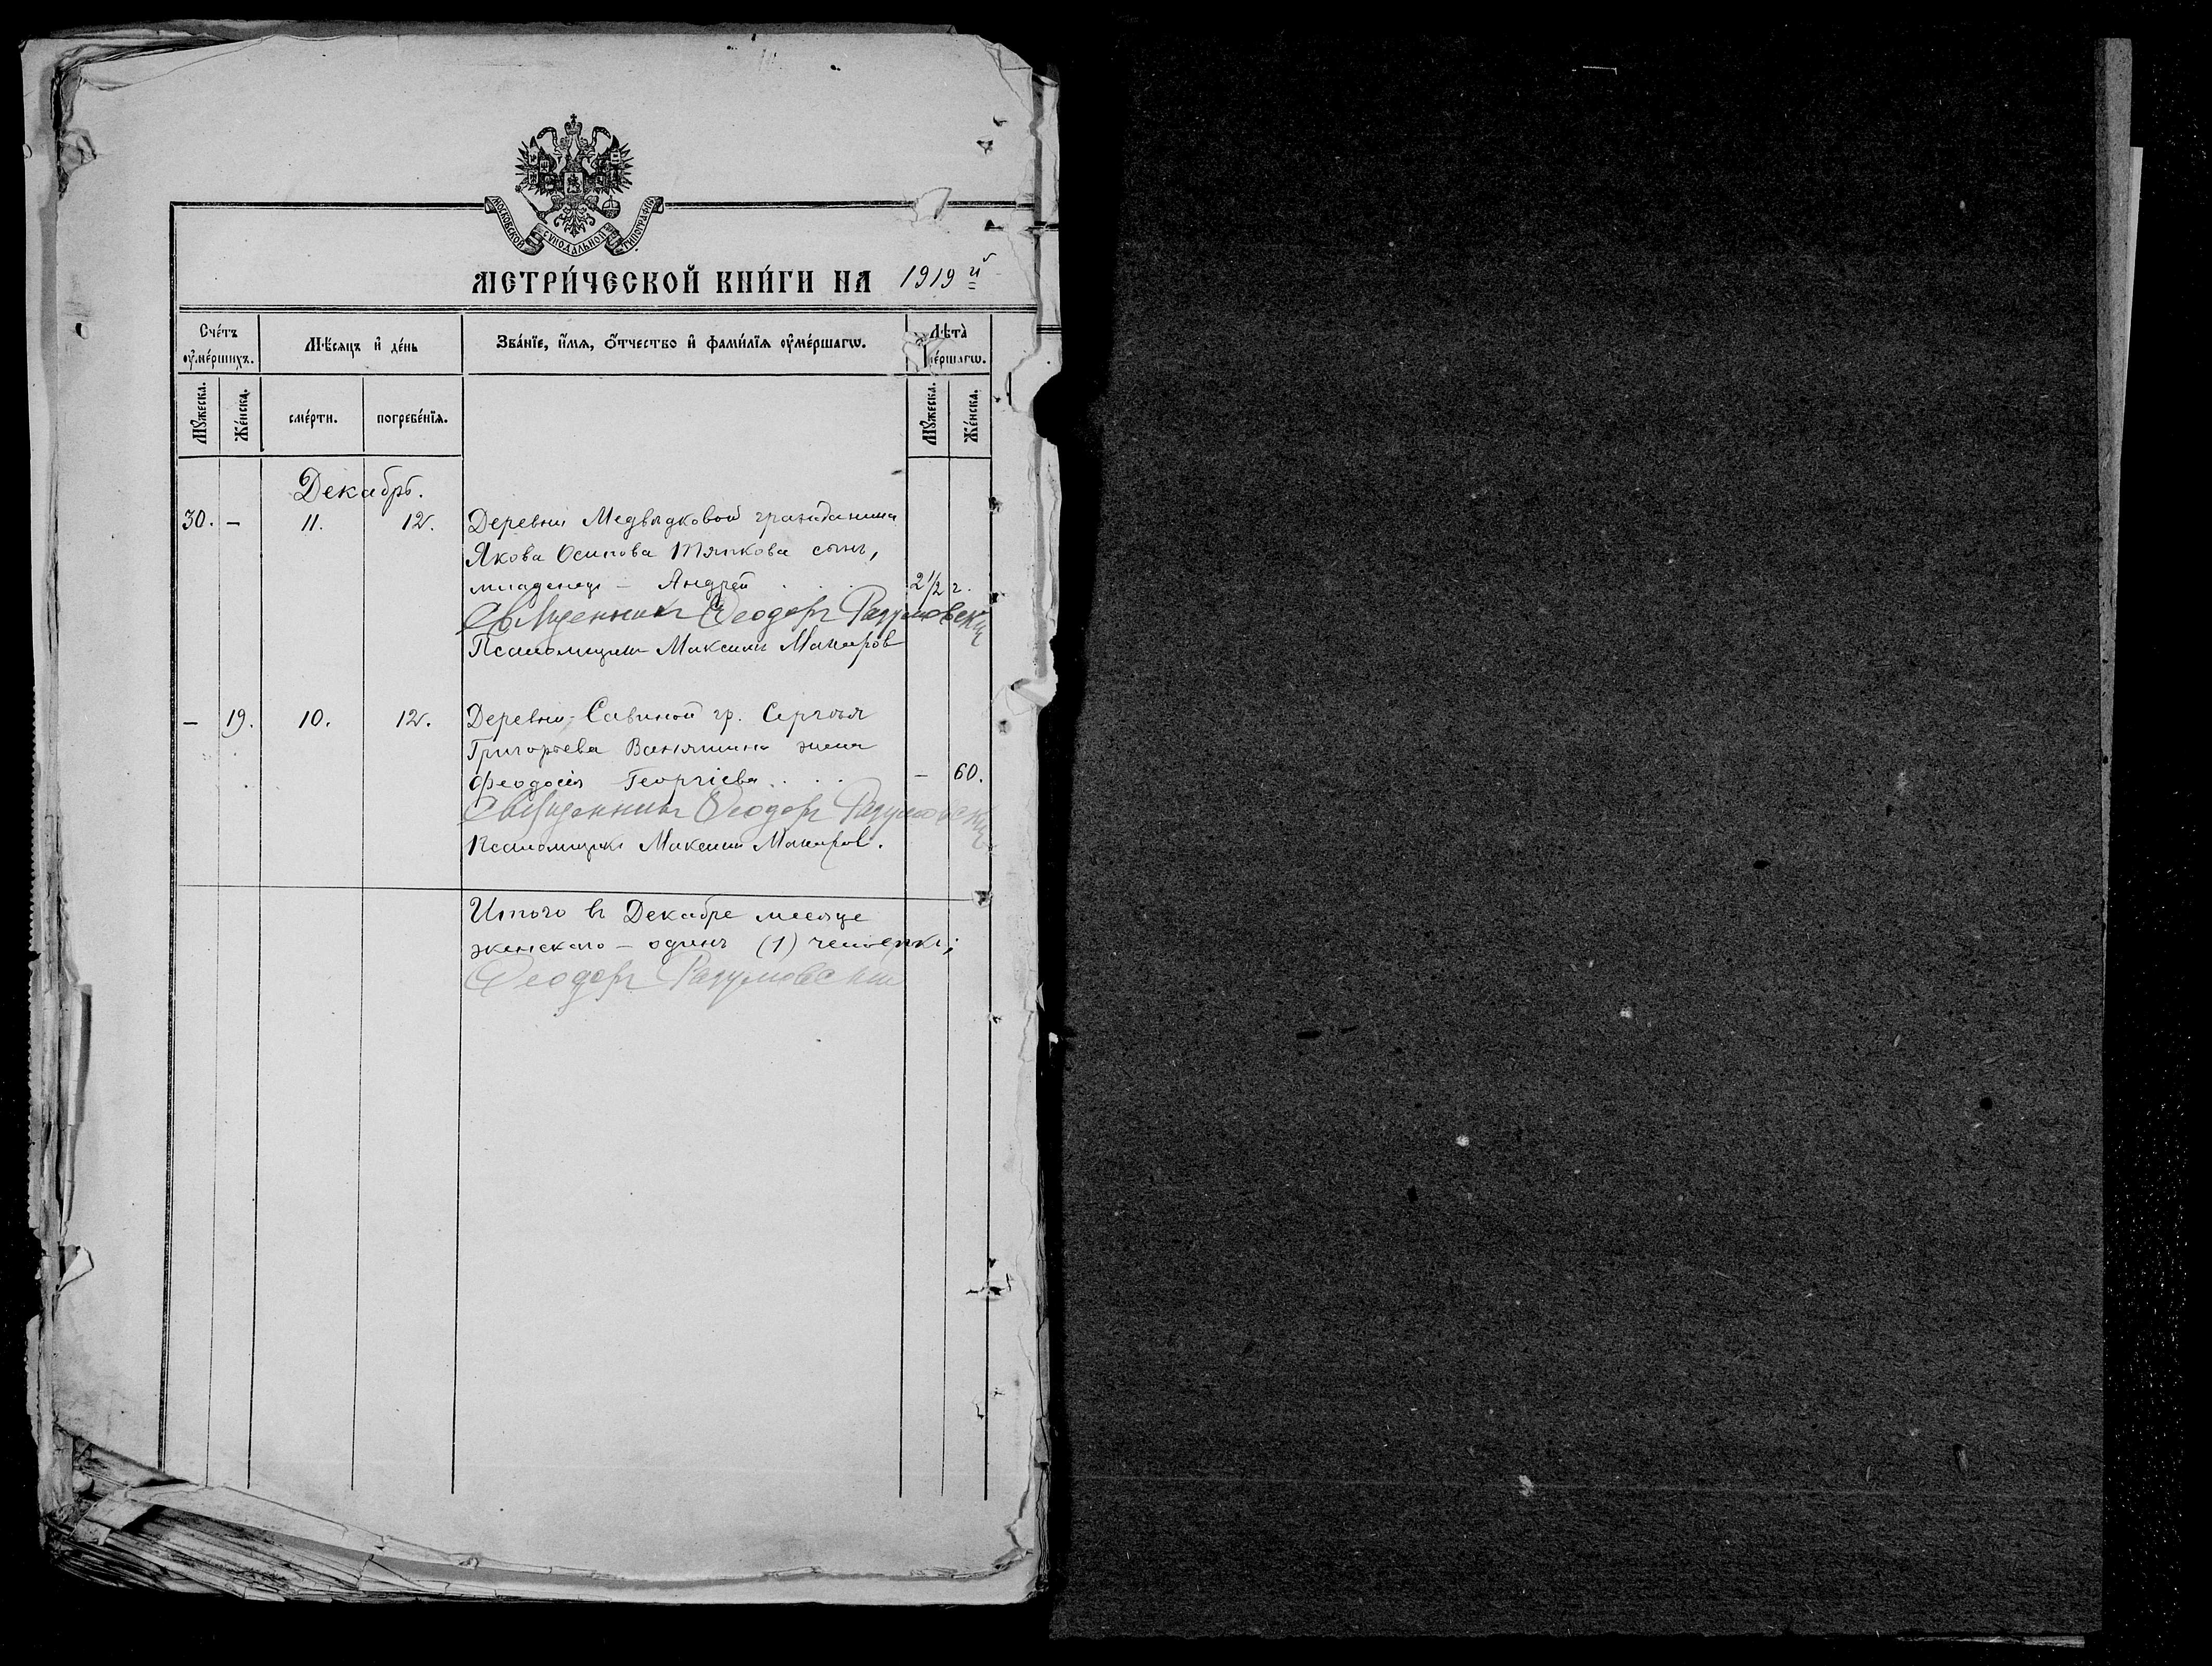 МОСКОВСКОЙ СѴНОДАЛЬНОЙ ТИПОГРАФІИ
МЕТРИ́ЧЕСКОЙ КНИ́ГИ НА 1919й
Сче́тъ ᲂу҆ме́ршихъ.
Мѣ́сяцъ и҆ де́нь
Зва́нїе, и҆́мѧ, ѻ҆́тчество и҆ фами́лїѧ ᲂу҆ме́ршагѡ.
Лѣта̀ ме́ршагѡ.
Мꙋ́жеска.
Же́нска.
сме́рти.
погребе́нїѧ.
Мꙋ́жеска.
Же́нска.
Декабрь.
30. – 11. 12. Деревни Медвѣдковой гражданина
Якова Осипова Тяпкова сынъ,
младенецъ – Андрей . . . 2 1/2 г.
Священникъ Ѳеодоръ Разумовскій
Псаломщикъ Максимъ
– 19. 10. 12. Деревни Савиной гр. Сергѣя
Григорьева жена
Феодосія Георгіева . . . – 60.
Священникъ Ѳеодоръ Разумовскій
Псаломщикъ Максимъ
Итого въ Декабре месяце
женскаго – одинъ (1) человѣкъ;
Ѳеодоръ Разумовскій